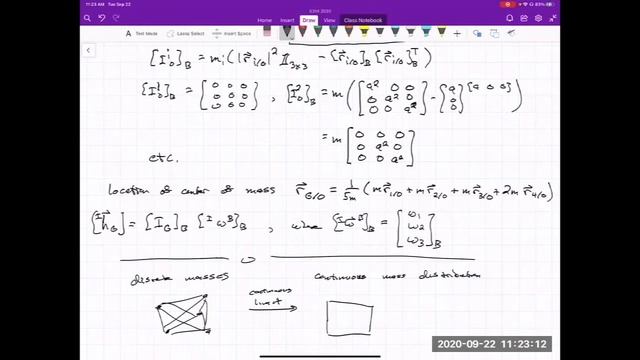 11:23 AM Tue Sep 22
83%
Home Insert Draw View Class Notebook
Text Mode Lasso Select Insert Space
[I^i_o]_B = m_i (|r⃗_{i/o}|² 𝟙_{3×3} - [r⃗_{i/o}]_B [r⃗_{i/o}]_B^T)
[I^1_o]_B = [0 0 0; 0 0 0; 0 0 0], [I^2_o]_B = m([a² 0 0; 0 a² 0; 0 0 a²] - [a; 0; 0][a 0 0])
= m [0 0 0; 0 a² 0; 0 0 a²]
etc.
location of center of mass r⃗_{G/O} = 1/5m (m r⃗_{1/0} + m r⃗_{2/0} + m r⃗_{3/0} + 2m r⃗_{4/0})
[^I h⃗_G] = [I_G]_B [^I ω^B]_B, where [^I ω⃗^B]_B = [ω1; ω2; ω3]_B
discrete masses continuous mass distribution
continuous
limit
2020-09-22 11:23:12